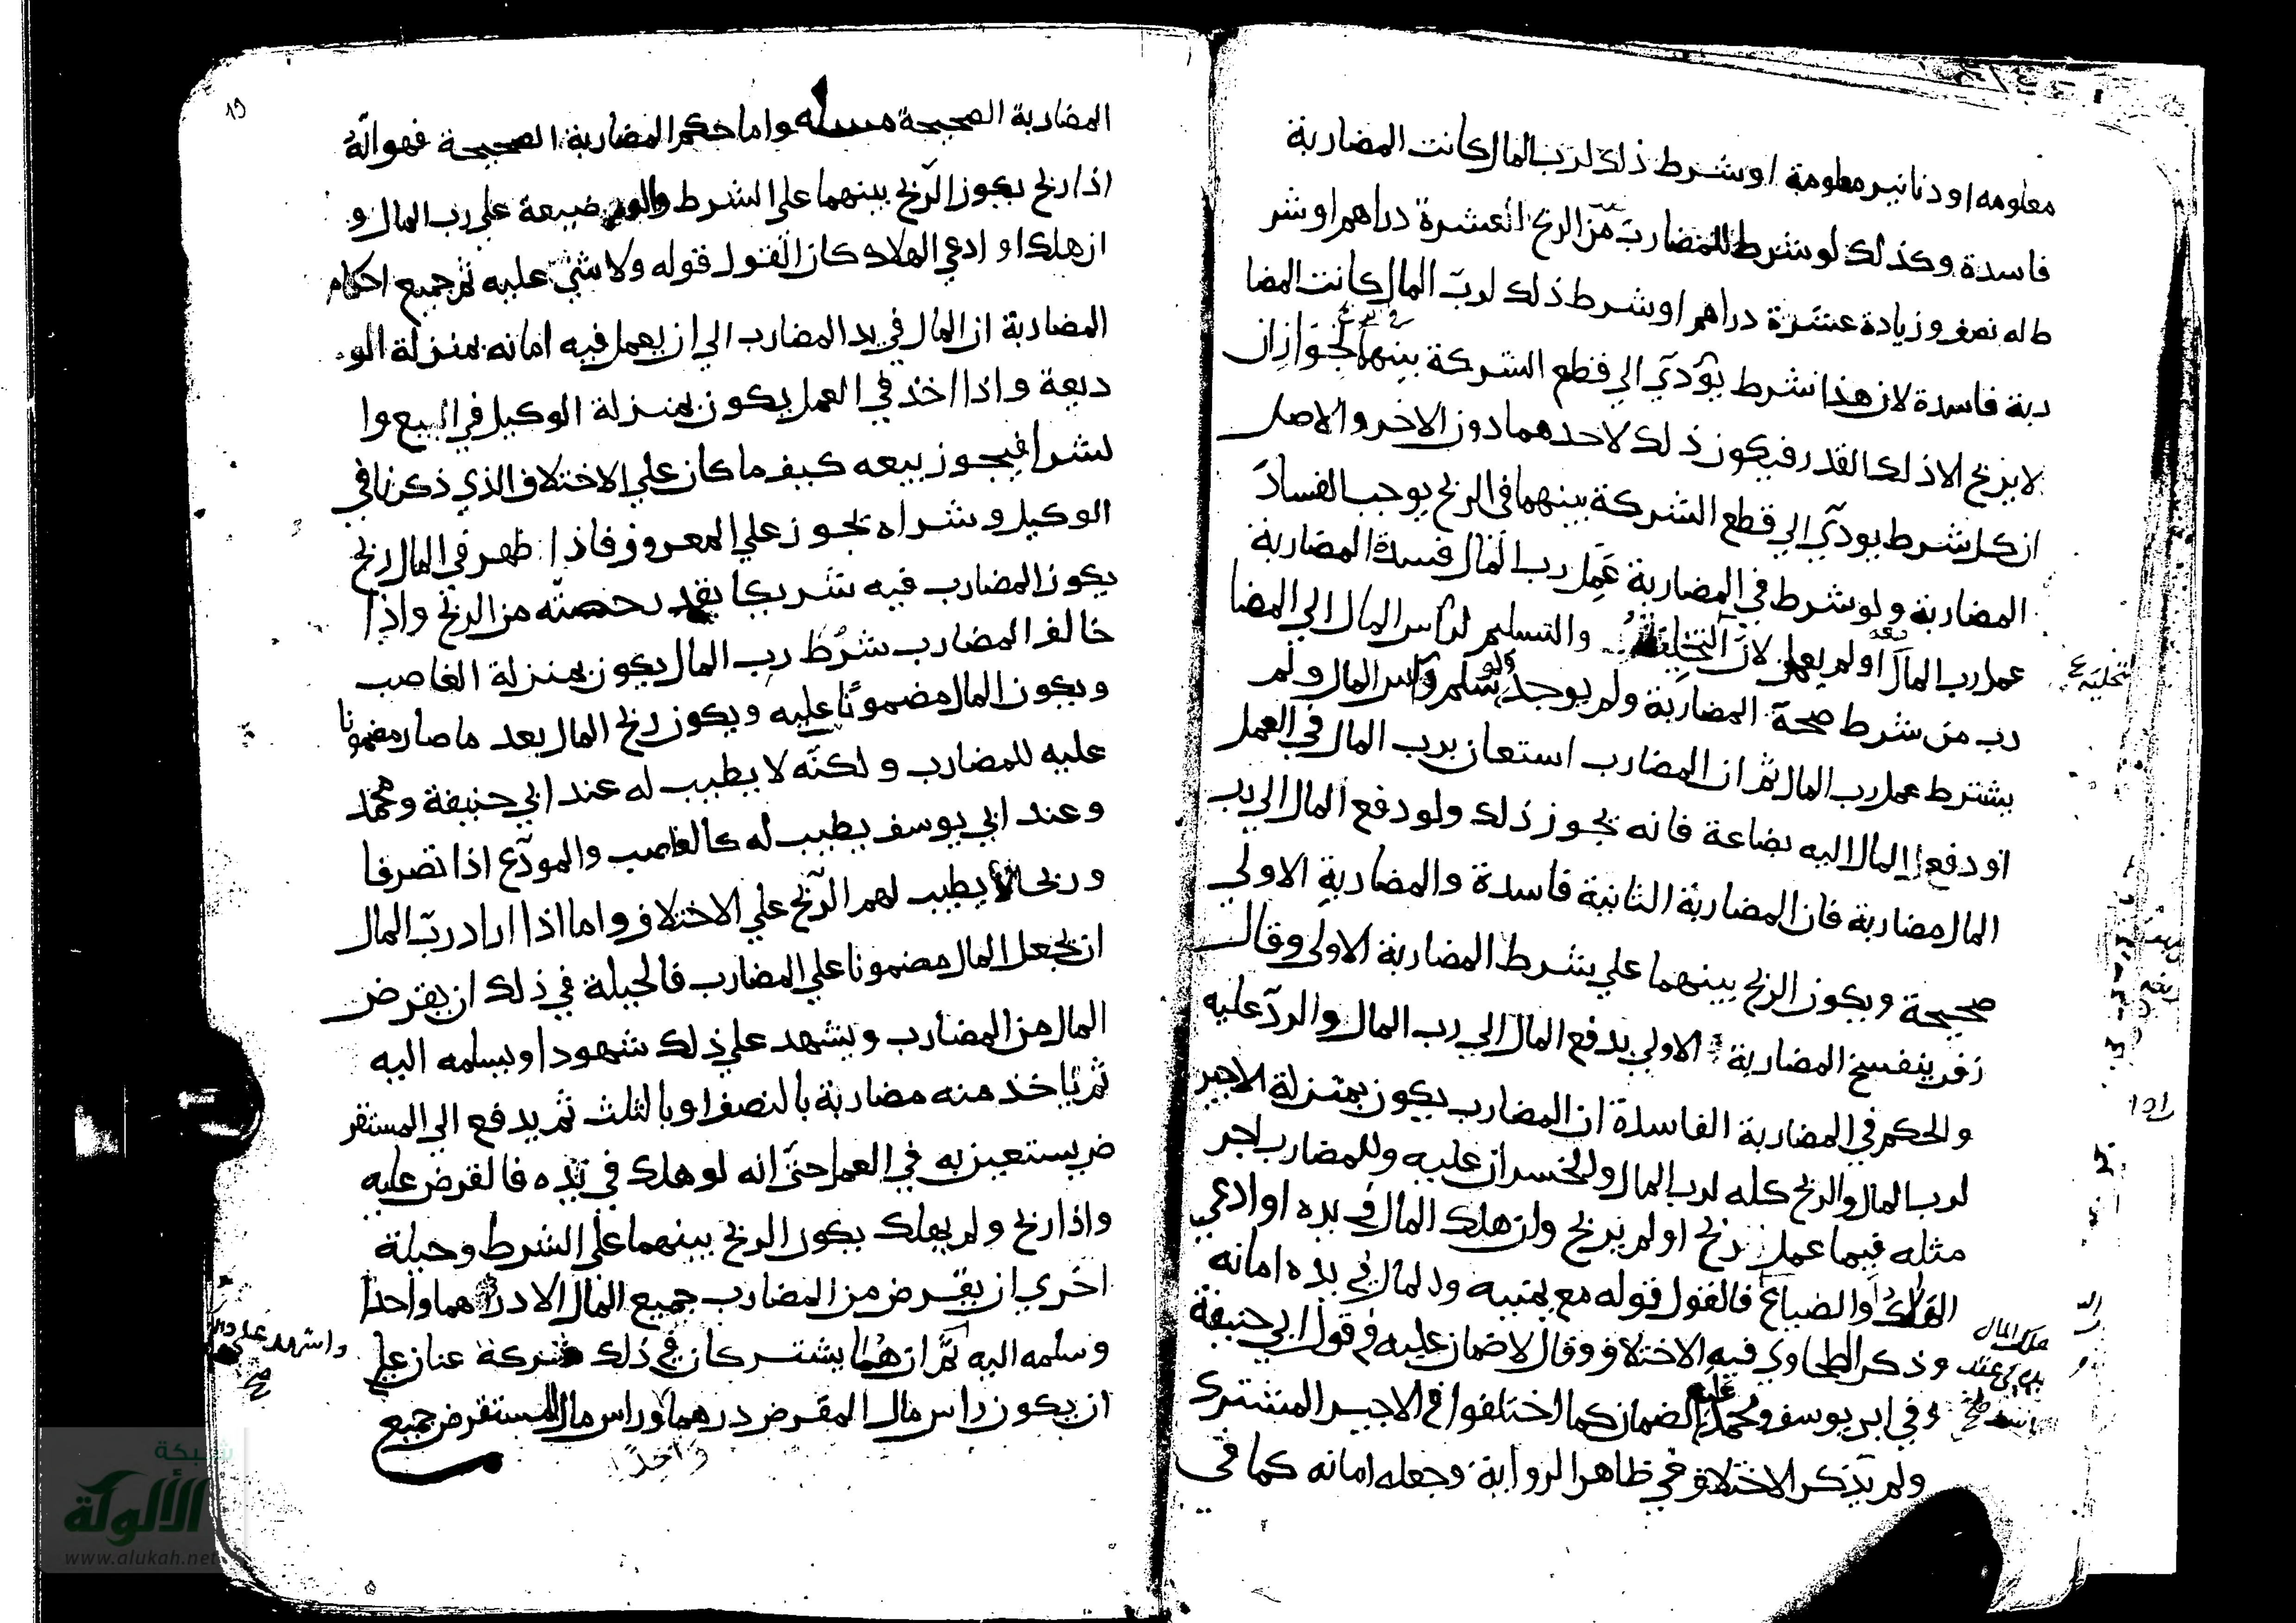 معلومه او دنانير معلومة او شرط ذلك لرب المال كانت المضاربة
فاسدة وكذلك لو شرط للمضارب من الربح العشرة دراهم او شر
ط له نصف وزيادة عشرة دراهم او شرط ذلك لرب المال كانت المضا
ربة فاسدة لان هذا شرط يؤدي الي قطع الشركة بينهما في الربح لجواز ان
لا يربح الا ذلك القدر فيكون ذلك لاحدهما دون الاخر والاصل
ان كل شرط يودي الي قطع الشركة بينهما في الربح يوجب الفساد
المضاربة ولو شرط في المضاربة عمل رب المال فسدة المضاربة
عمل رب المال بعد او لم يعمل لان التخلية والتسليم لراس المال الي المضا
رب من شرط صحة المضاربة ولم يوجد ولو سلم راس المال ولم
يشترط عمل رب المال ثم ان المضارب استعان برب المال في العمل
او دفع المال اليه بضاعة فانه يجوز ذلك ولو دفع المال الي رب
المال مضاربة فان المضاربة الثانية فاسدة والمضاربة الاولي
صحيحة ويكون الربح بينهما علي شرط المضاربة الاولي وقال
زفر ينفسخ المضاربة الاولي بدفع المال الي رب المال والرد عليه
والحكم في المضاربة الفاسدة ان المضارب يكون بمنزلة الاجير
لرب المال والربح كله لرب المال والخسران عليه وللمضارب اجر
مثله فيما عمل ربح او لم يربح وان هلك المال في يده او ادعي
الهلاك والضياع فالقول قوله مع يمينه والمال في يده امانه
وذكر الطحاوي فيه الاختلاف وقال لا ضمان عليه في قول ابي حنيفة
وفي ابي يوسف ومحمد عليه الضمان كما اختلفوا في الاجير المشترك
ولم يذكر الاختلاف في ظاهر الرواية وجعله امانه كما في
التخلية
هلك المال
19
المضاربة الصحيحة مسله واما حكم المضاربة الصحيحة فهو انّه
اذا ربح يكون الربح بينهما علي الشرط والوضيعة علي رب المال و
ان هلك او ادعي الهلاك كان القول قوله ولا شئ عليه ثم جميع احكام
المضاربة ان المال في يد المضارب الي ان يعمل فيه امانه بمنزلة الو
ديعة واذا اخذ في العمل يكون بمنزلة الوكيل في البيع وا
لشرا فيجوز بيعه كيف ما كان علي الاختلاف الذي ذكرنا في
الوكيل وشراه يجوز علي المعروف فاذا ظهر في المال ربح
يكون المضارب فيه شريكا بقدر حصته من الربح واذا
خالف المضارب شرط رب المال يكون بمنزلة الغاصب
ويكون المال مضمونا عليه ويكون ربح المال بعد ما صار مضمونا
عليه للمضارب ولكنه لا يطيب له عند ابي حنيفة ومحمد
وعند ابي يوسف يطيب له كالغاصب والمودع اذا تصرفا
وربحا لا يطيب لهم الربح علي الاختلاف واما اذا اراد رب المال
ان يجعل المال مضمونا علي المضارب فالحيلة في ذلك ان يقرض
المال من المضارب ويشهد علي ذلك شهودا ويسلمه اليه
ثم ياخذ منه مضاربة بالنصف او بالثلث ثم يدفع الي المستقر
ض يستعين به في العمل حتي انه لو هلك في يده فالقرض عليه
واذا ربح ولم يهلك يكون الربح بينهما علي الشرط وحيلة
اخري ان يقرض من المضارب جميع المال الا درهما واحدا
وسلمه اليه ثم انهما يشتركان في ذلك شركة عنان علي
ان يكون راس مال المقرض درهما وراس مال المستقرض جميع
واحدًا
شبكة
الألوكة
www.alukah.net